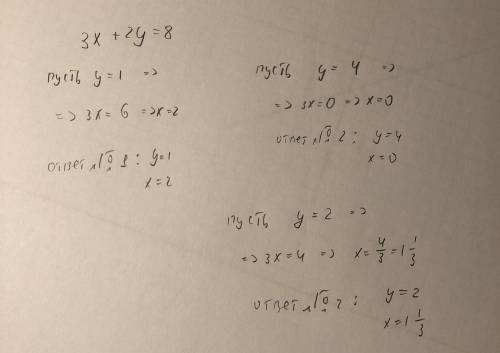 3x + 2y = 8
пусть y = 1 =>
=> 3x = 6 => x = 2
ответ №1: y = 1
x = 2
пусть y = 4 =>
=> 3x = 0 => x = 0
ответ №2: y = 4
x = 0
пусть y = 2 =>
=> 3x = 4 => x = 4/3 = 1 1/3
ответ №2: y = 2
x = 1 1/3